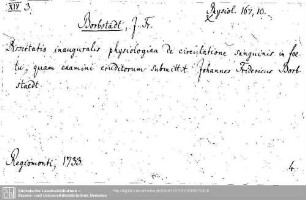 XIV 3.
Physiol. 167, 10.
Borbstadt, J. Fr.
Dissertatio inauguralis physiologica de circulatione sanguinis in foe-
tu, quam examini eruditorum submittit Johannes Fridericus Borb
staedt.
Regiomonti, 1733.
4.
Sächsische Landesbibliothek -
Staats- und Universitätsbibliothek Dresden